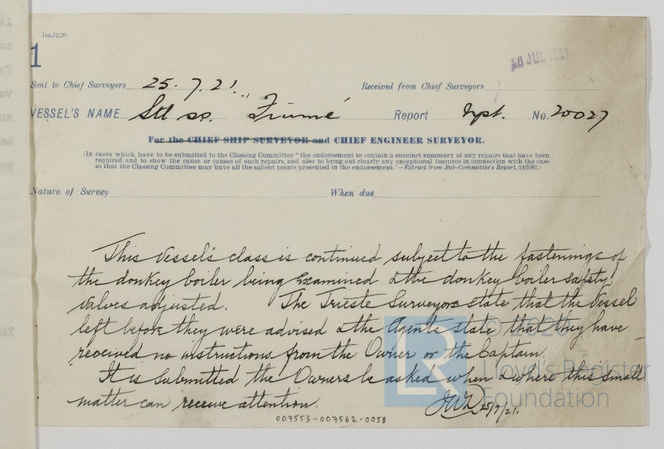 1m,12,20.
1
Sent to Chief Surveyors 25.7.21. Received from Chief Surveyors
VESSEL'S NAME Stl ss. Fiumé Report Npt. No. 20027
For the CHIEF SHIP SURVEYOR and CHIEF ENGINEER SURVEYOR.
(In cases which have to be submitted to the Classing Committee "the endorsement to contain a succinct summary of any repairs that have been
required and to show the cause or causes of such repairs, and also to bring out clearly any exceptional features in connection with the case
so that the Classing Committee may have all the salient points presented in the endorsement."—Extract from Sub-Committee's Report,
Nature of Survey When due
This Vessel's class is continued subject to the fastenings of
the donkey boiler being Examined & the donkey boiler safety
valves adjusted. The Trieste Surveyors state that the vessel
left before they were advised & the Agents state that they have
received no instructions from the Owner or the Captain.
It is submitted the Owners be asked when & where this small
matter can receive attention.
25/7/21.
007553-007562-0058
LR
Lloyd's Register
Foundation